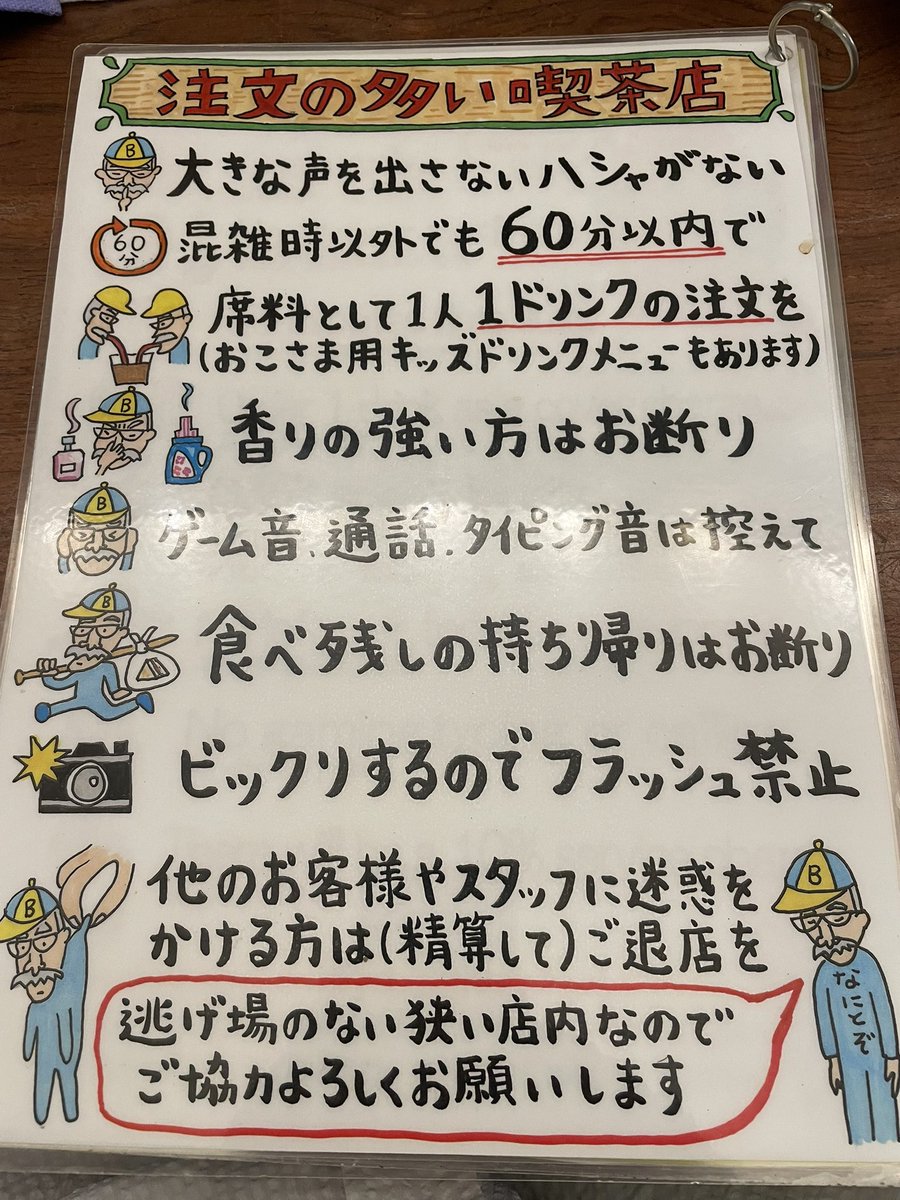 注文の多い喫茶店
B
大きな声を出さないハシャがない
60分
混雑時以外でも60分以内で
席料として1人1ドリンクの注文を
(おこさま用キッズドリンクメニューもあります)
B
香りの強い方はお断り
B
ゲーム音、通話、タイピング音は控えて
B
食べ残しの持ち帰りはお断り
ビックリするのでフラッシュ禁止
B
他のお客様やスタッフに迷惑を
かける方は(精算して)ご退店を
B
なにとぞ
逃げ場のない狭い店内なので
ご協力よろしくお願いします